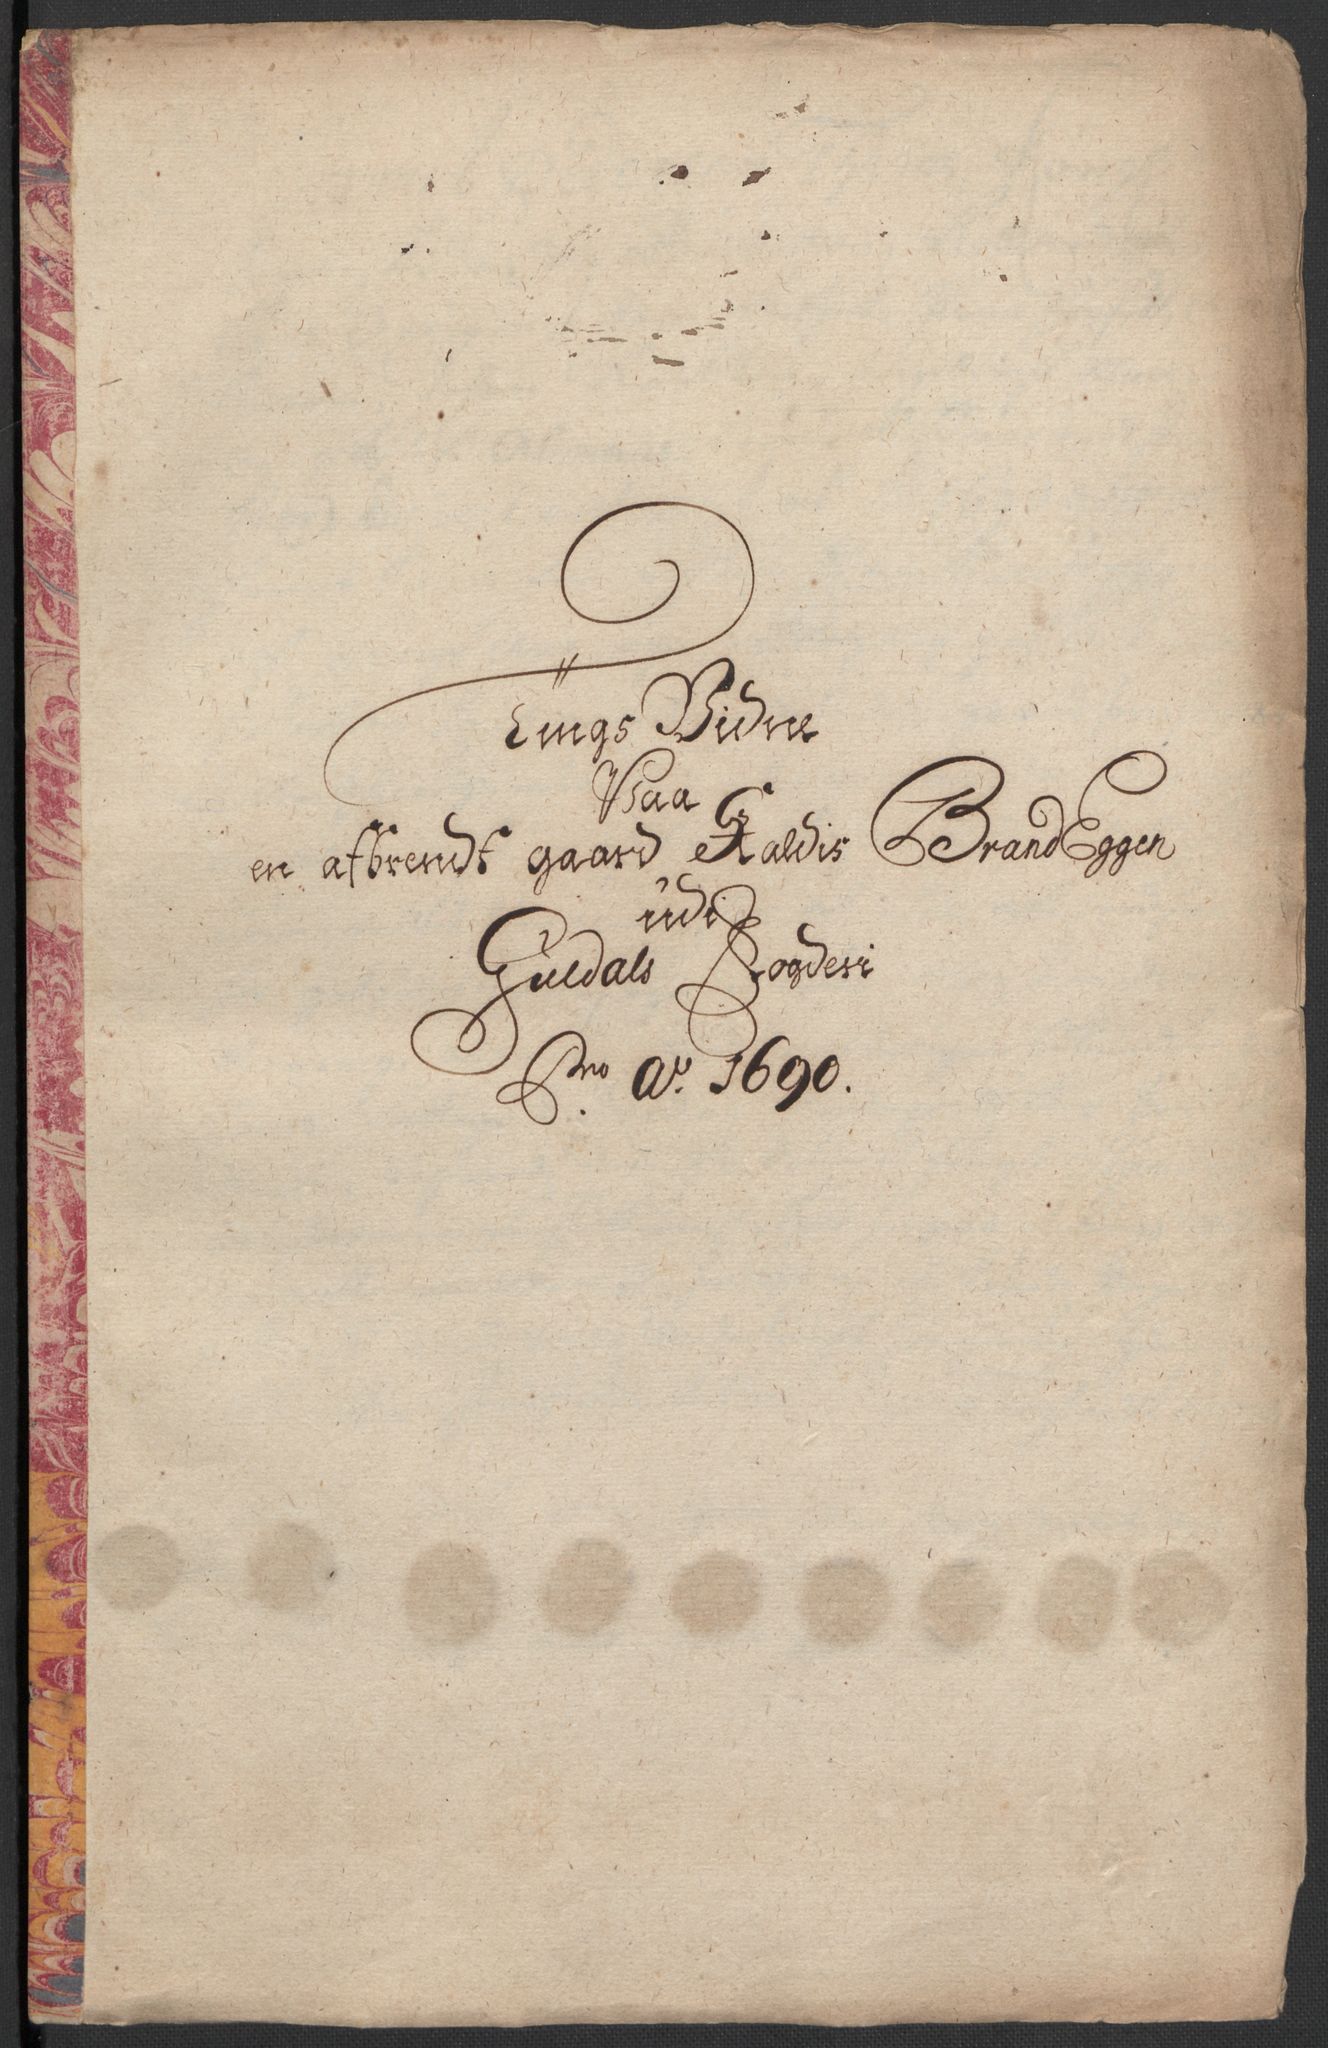 Tings Vidne
Paa
en afbrendt gaard Kaldis Brand Eggen
udi
Guldals Fogderi
Pro Ao. 1690.